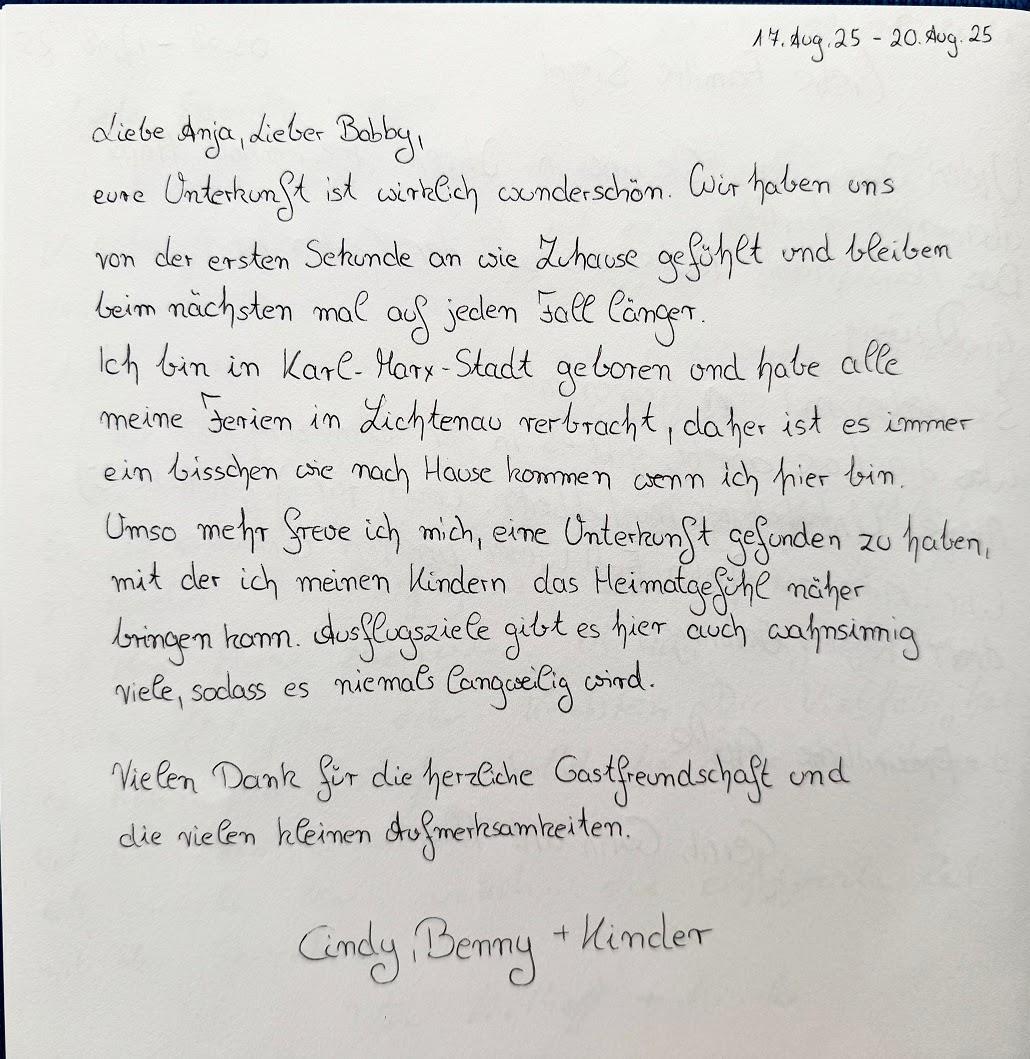 17. Aug. 25 - 20. Aug. 25
Liebe Anja, Lieber Bobby,
eure Unterkunft ist wirklich wunderschön. Wir haben uns
von der ersten Sekunde an wie Zuhause gefühlt und bleiben
beim nächsten mal auf jeden Fall länger.
Ich bin in Karl-Marx-Stadt geboren und habe alle
meine Ferien in Lichtenau verbracht, daher ist es immer
ein bisschen wie nach Hause kommen wenn ich hier bin.
Umso mehr freue ich mich, eine Unterkunft gefunden zu haben,
mit der ich meinen Kindern das Heimatgefühl näher
bringen kann. Ausflugsziele gibt es hier auch wahnsinnig
viele, sodass es niemals langweilig wird.
Vielen Dank für die herzliche Gastfreundschaft und
die vielen kleinen Aufmerksamkeiten.
Cindy, Benny + Kinder